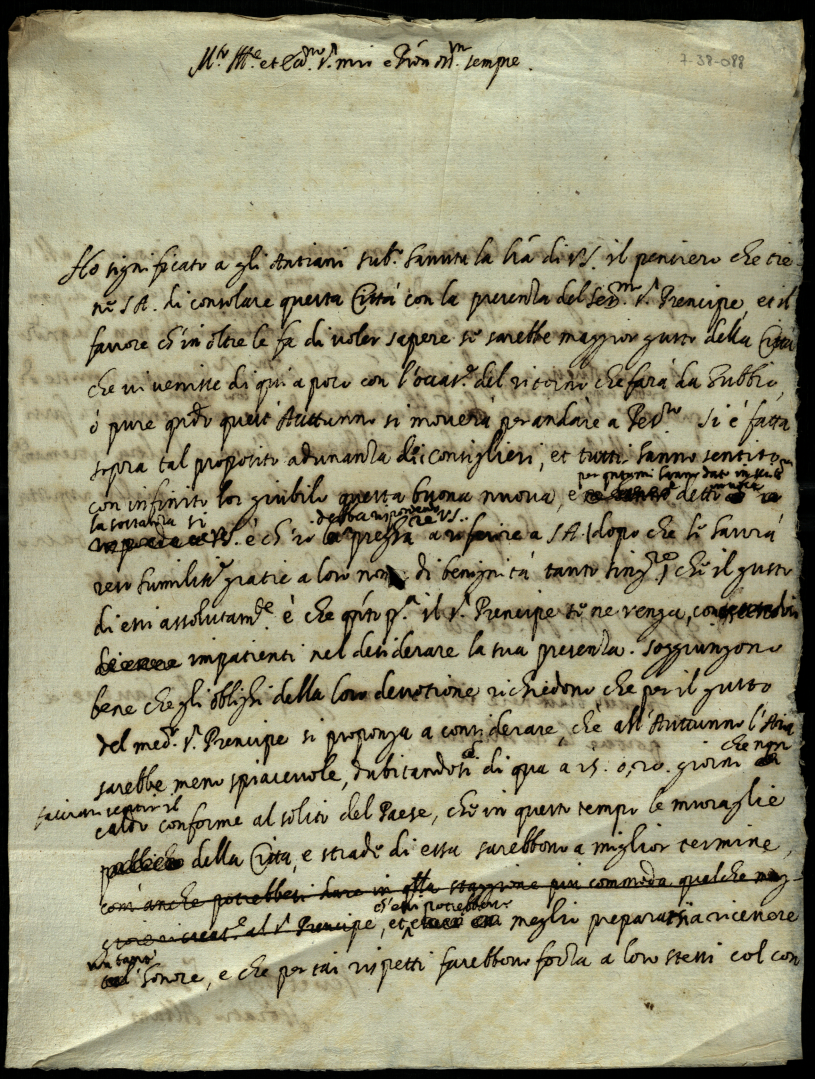 7-38-088
M.to Ill.e et Ecc.mo S.r mio e Pron oss.mo sempre.
Ho significato a gli Antiani sub.o havuta la l'ra di VS. il pensiero che tie
ne S A. di consolare questa Città con la presenza del Ser.mo S.r Prencipe, et il
favore ch'in oltre le fa di voler sapere se sarebbe maggior gusto della Città
che vi venisse di qui a poco con l'occas.e del ritorno che farà da Gubbio,
ò pure qu'do quest'Auttunno si moverà per andare a Pes.ro Si è fatta
sopra tal proposito adunanza de i consiglieri, et tutti hanno sentito
per quanto hanno dato in
con infinito lor giubilo questa buona nuova, e detto
la sostanza si debba rispondere VS.
è ch'io a riferire a S A. (dopo che le havrà
reso humiliss.e gratie a loro nome di benignità tanto sing.re) che il gusto
di essi assolutam.te è che q'to p.a il S.r Prencipe se ne venga,
impatienti nel desiderare la sua presenza. Soggiungono
bene che gli oblighi della loro devotione richiedono che per il gusto
del med.o S.r Prencipe si proponga a considerare, che all'Auttunno l'Aria
sarebbe meno spiacevole, dubitandosi di qua a 15. o, 20. giorni che non
facciasi sentir il
caldo conforme al solito del Paese, che in questo tempo le muraglie
della Città, e strade di essa sarebbono a miglior termine,
com'anche potrebbesi dare in q'lla staggione più commoda qualche mag-
giore ricreat.e al S.r Prencipe, et ch'essi potrebbono meglio prepararsi a ricevere
un tanto
honore, e che per tai rispetti farebbono forza a loro stessi col con